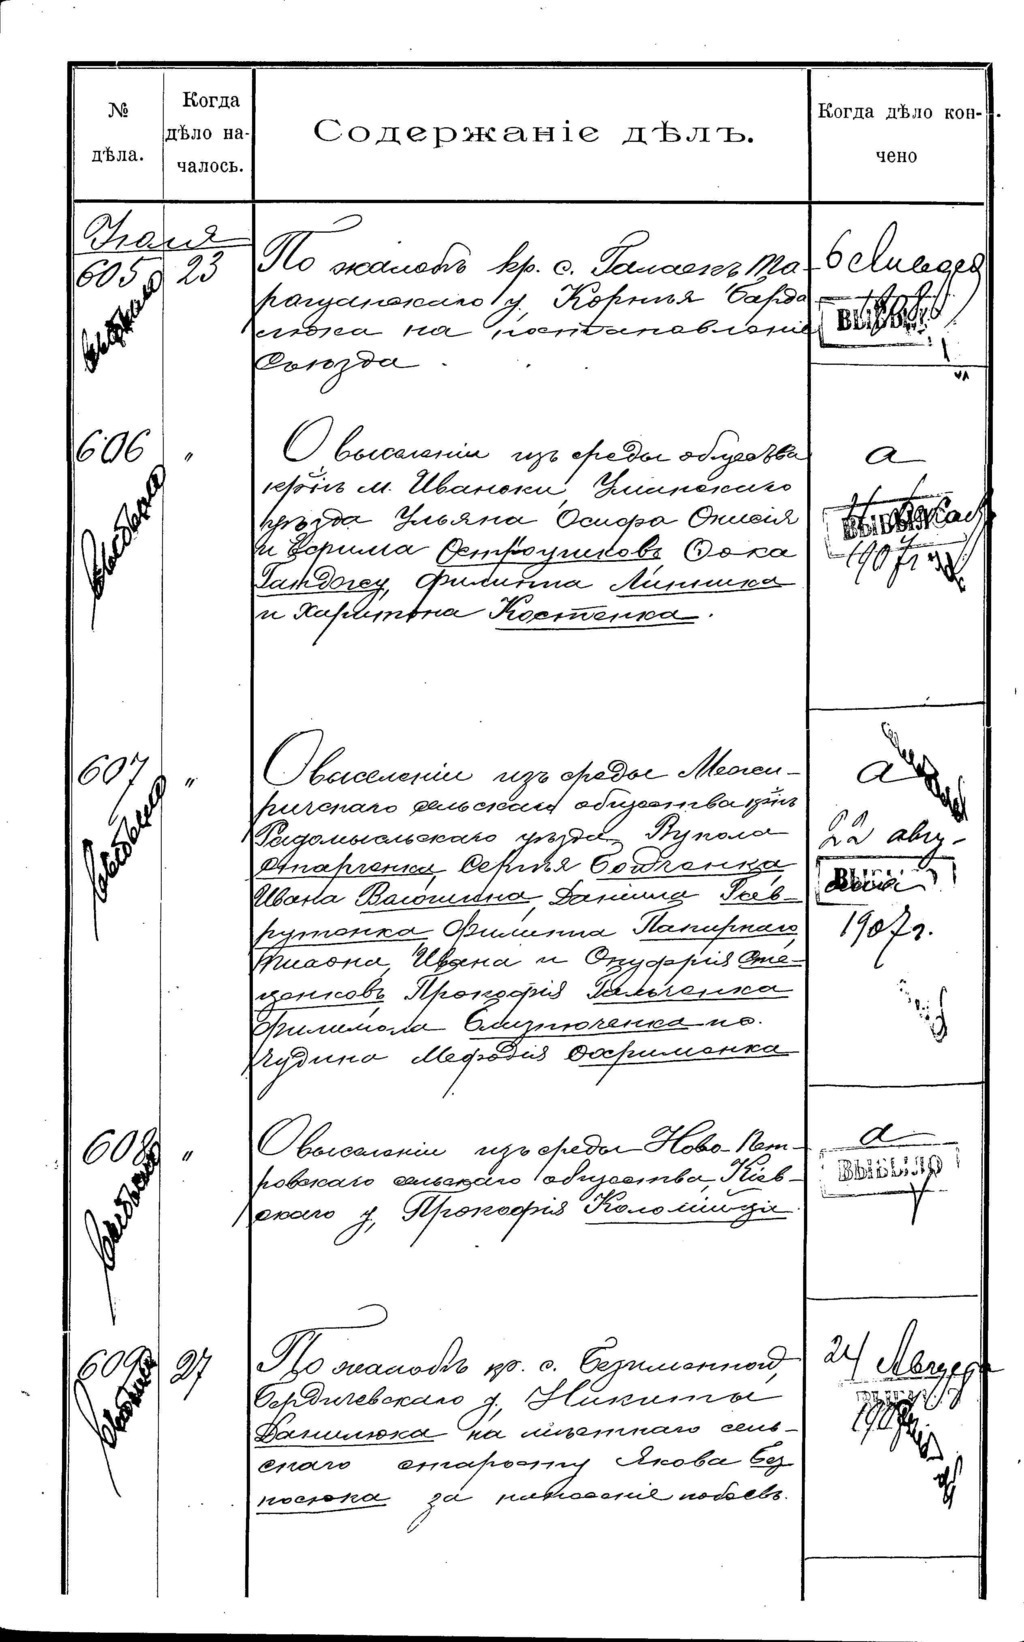 № дѣла.
Когда дѣло на-
чалось.
Содержаніе дѣлъ.
Когда дѣло кон-
чено
Іюля
605 23 По жалобѣ кр. с. Галаекъ Та-
ращанскаго у, Корнѣя Барда
люка на постановленіе
Съѣзда
6 Января
ВЫБЫЛО
606 " О выселеніи изъ среды общества
кр-нъ м. Иваньки, Уманскаго
уѣзда Ульяна Осифа Онисія
и Ефима Остроушковъ, Фока
Филиппа Линника
и Харитона Костенка.
а
ВЫБЫЛО
1907 г
607 " О выселеніи изъ среды Межи-
ричскаго сельскаго общества кр-нъ
Радомысльскаго уѣзда Вукола
Старченка, Сергѣя Бойченка,
Ивана Волошина, Даніила Гав-
рутенка Филиппа Папирнаго,
Ивана и Онуфрія Сте-
ценковъ, Прокофія Гальченка
Филимона Близнюченка по.
Чудина Мефодія Охрименка
а
22 авгу-
ста
ВЫБЫЛО
1907 г.
608 " О выселеніи изъ среды Ново-Пет-
ровскаго сельскаго общества, Кіев-
скаго у, Прокофія Коломійца.
а
ВЫБЫЛО
609 27 По жалобѣ кр. с. Безименной,
Бердичевскаго у, Никиты
Данилюка на мѣстнаго сель-
скаго старосту Якова Без
носюка за нанесеніе побоевъ.
24 Августа
1907